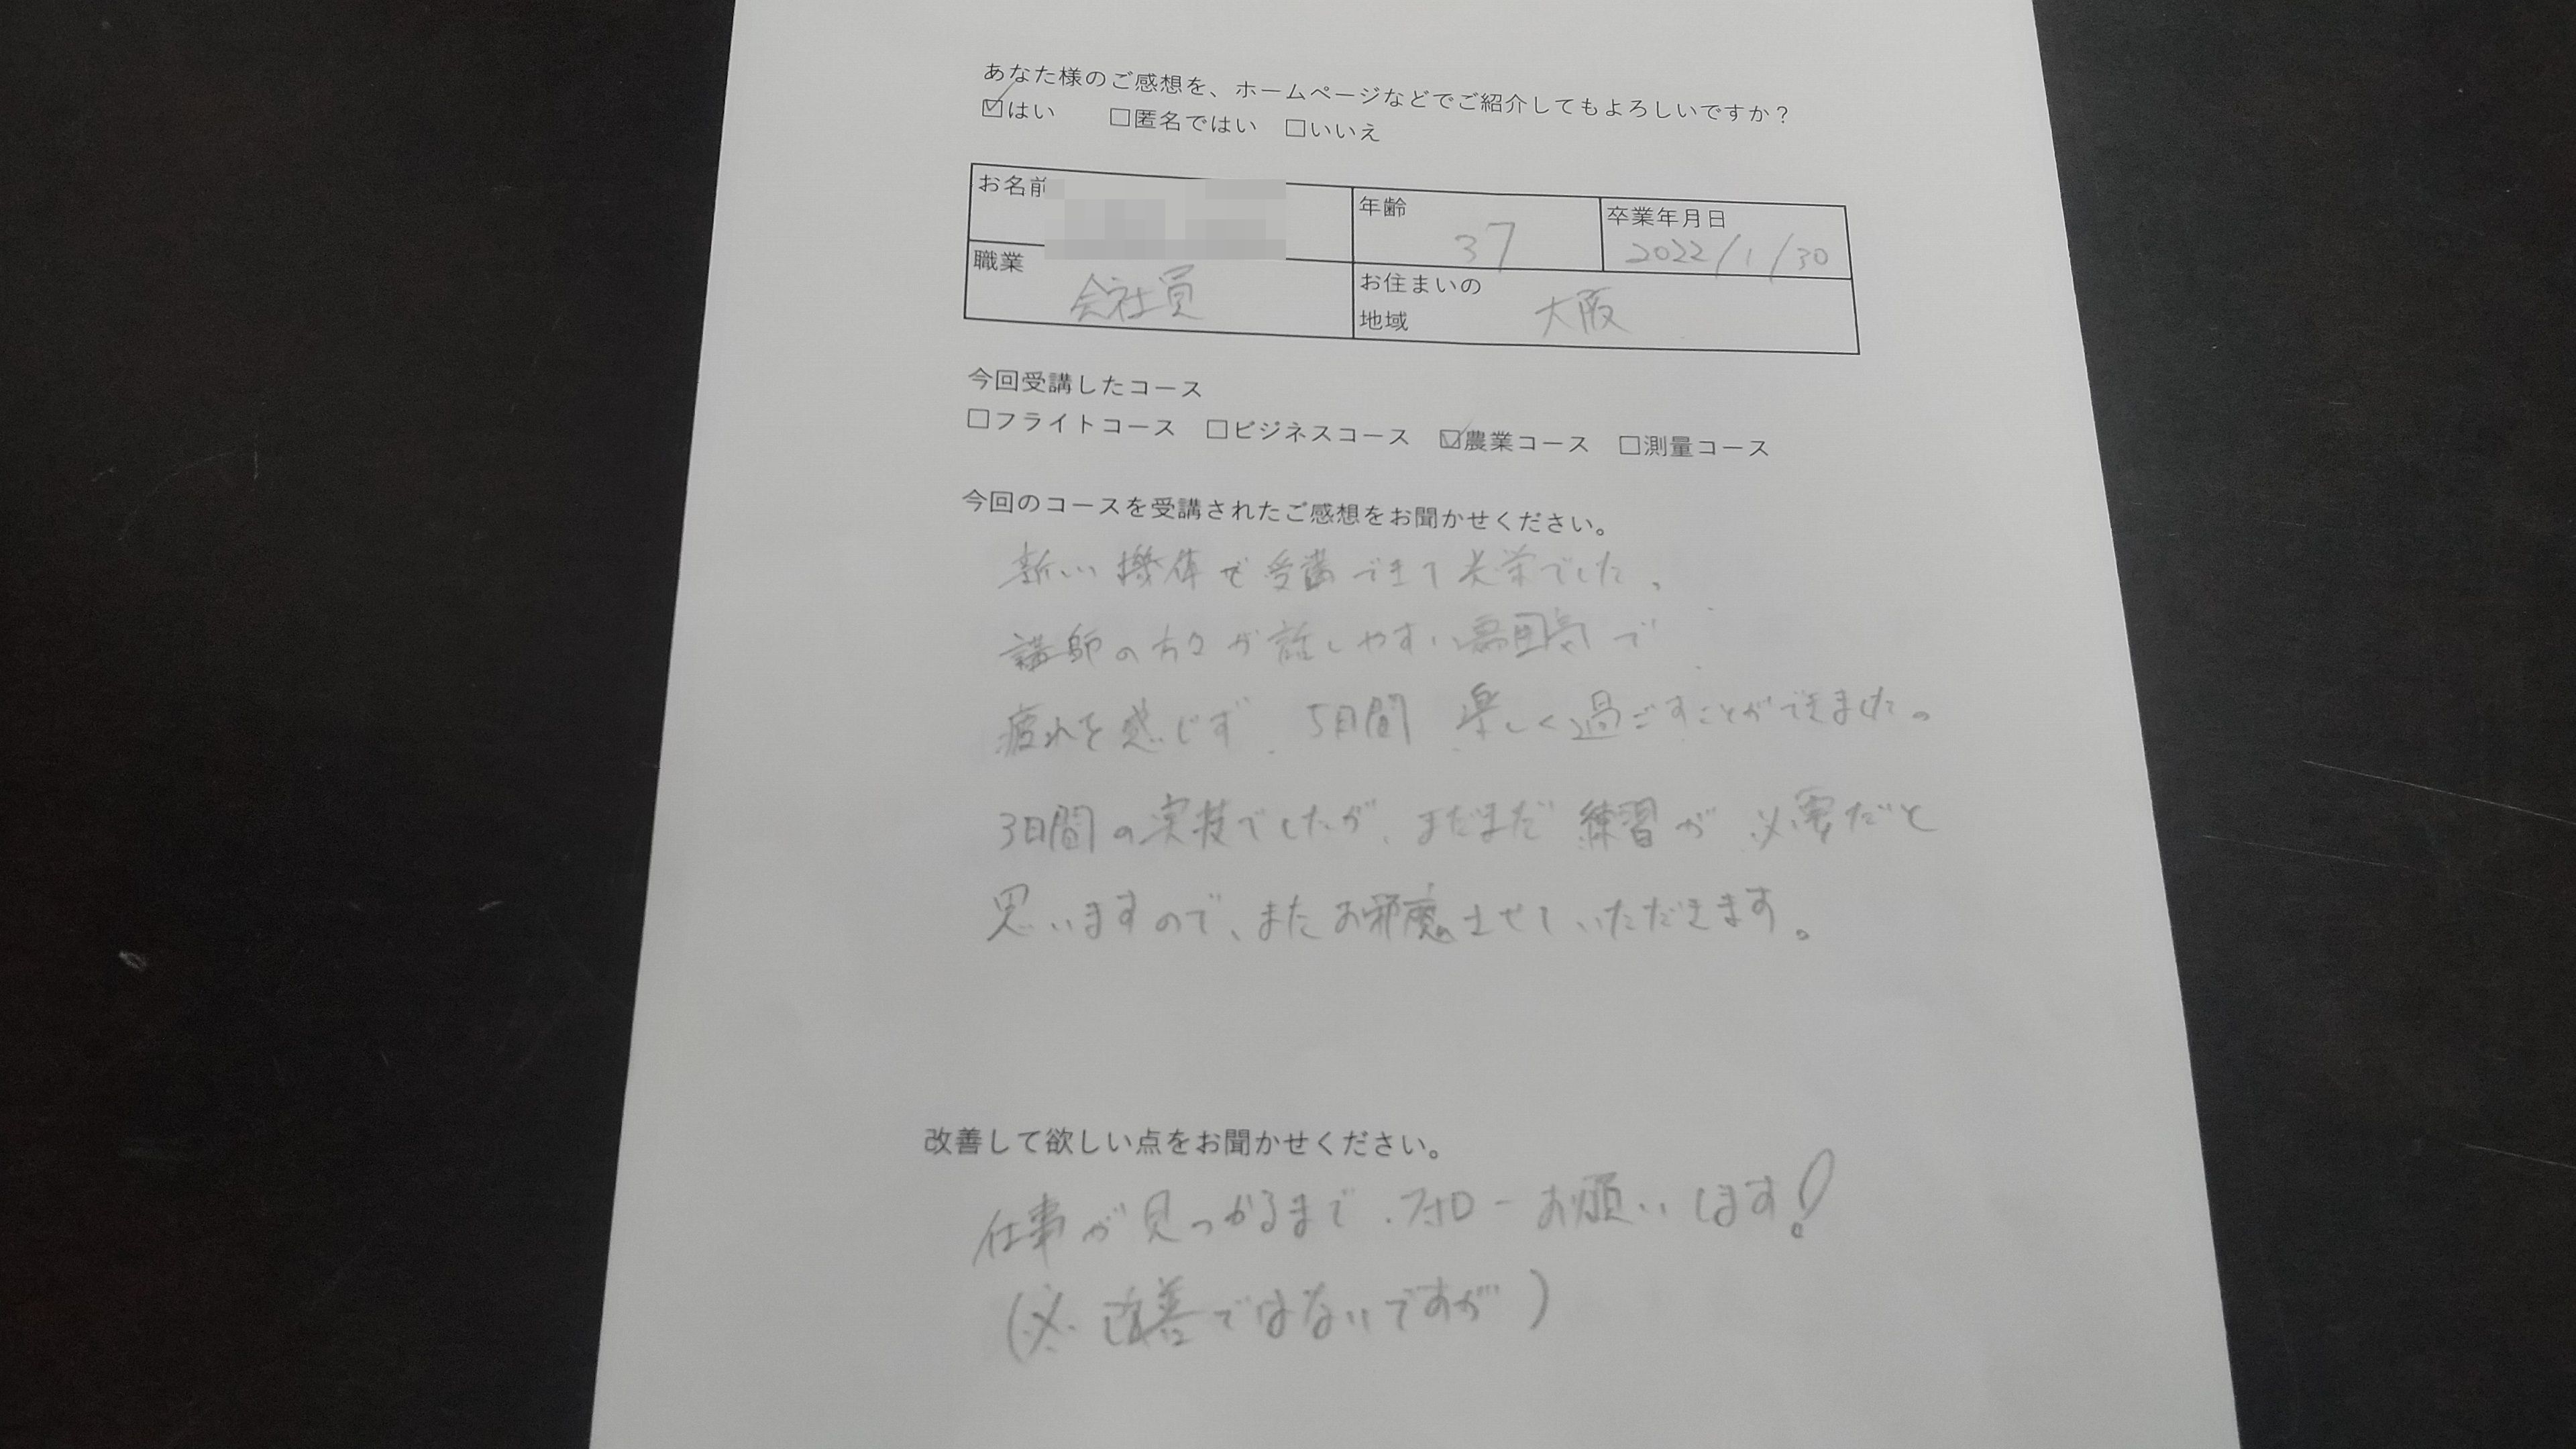 あなた様のご感想を、ホームページなどでご紹介してもよろしいですか？
☑はい □匿名ではい □いいえ
お名前
年齢 37
卒業年月日 2022/1/30
職業 会社員
お住まいの地域 大阪
今回受講したコース
□フライトコース □ビジネスコース ☑農業コース □測量コース
今回のコースを受講されたご感想をお聞かせください。
新しい機体で受講できて光栄でした。
講師の方々が話しやすい雰囲気で
疲れを感じず、5日間 楽しく過ごすことができました。
3日間の実技でしたが、まだまだ練習が必要だと
思いますので、またお邪魔させていただきます。
改善して欲しい点をお聞かせください。
仕事が見つかるまで、フォローお願いします!
(※改善ではないですが)